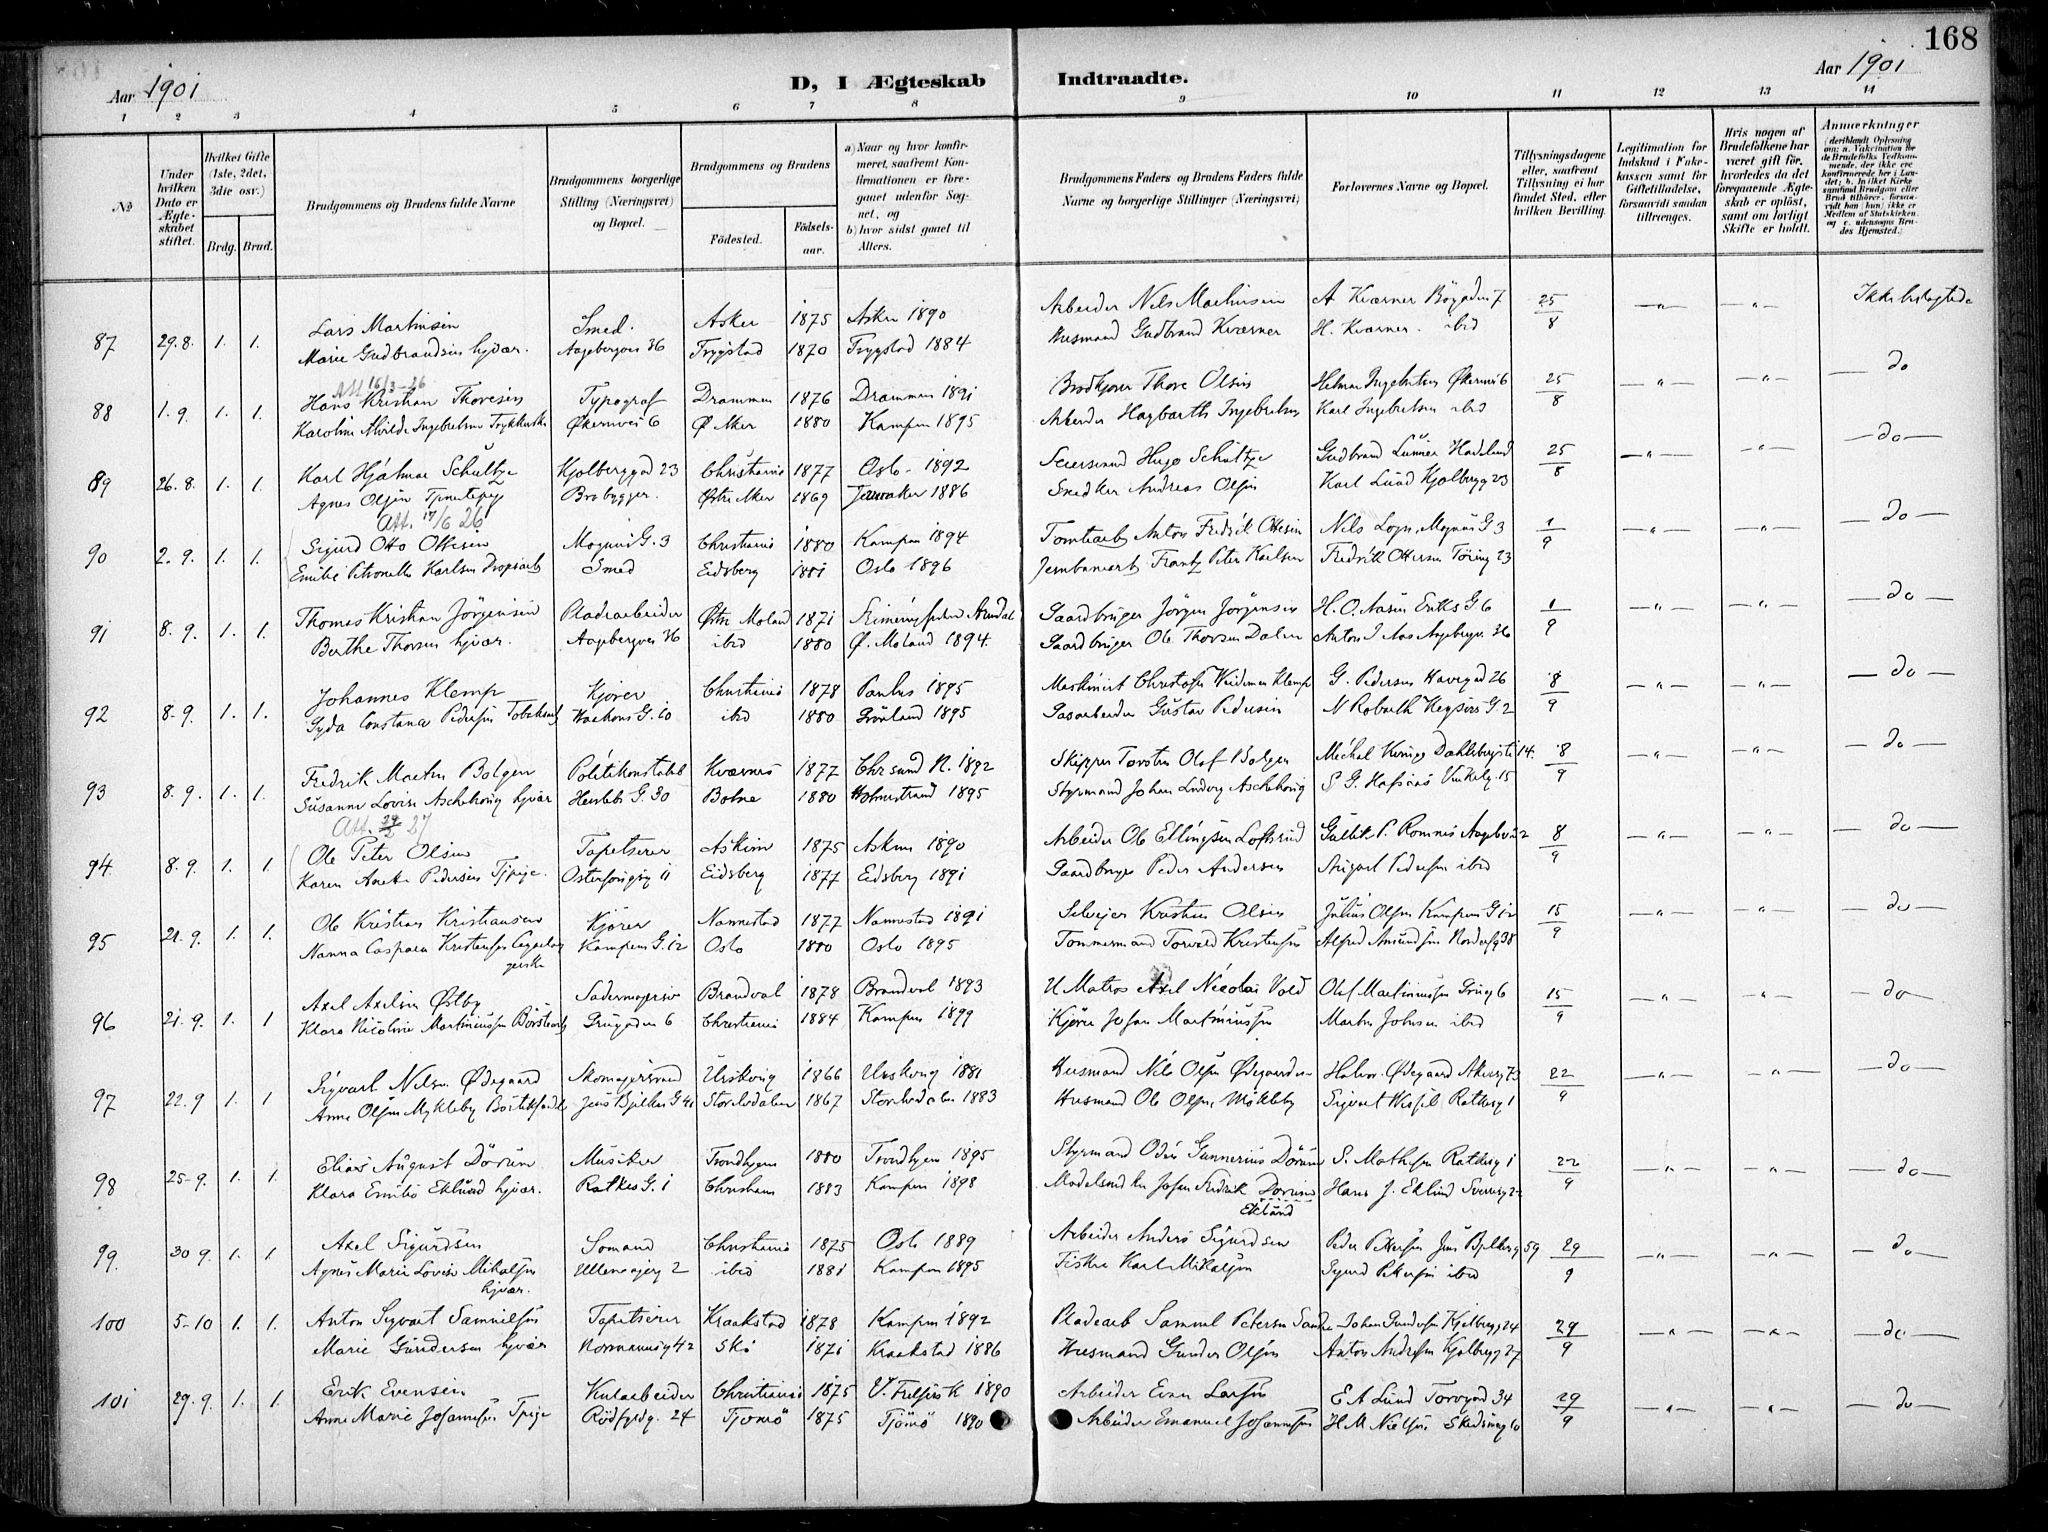 168
Aar 1901
D, I Ægteskab
Indtraadte.
Aar 1901
1 2 3 4 5 6 7 8 9 10 11 12 13 14
No
Under hvilken Dato er Ægteskabet stiftet.
Hvilket Gifte (1ste, 2det, 3die osv.)
Brdg. Brud.
Brudgommens og Brudens fulde Navne
Brudgommens borgerlige Stilling (Næringsvei) og Bopæl.
Brudgommens og Brudens
Fødested. Fødselsaar.
a) Naar og hvor konfirmeret, saafremt Konfirmationen er foregaaet udenfor Sognet, og
b) hvor sidst gaaet til Alters.
Brudgommens Faders og Brudens Faders fulde Navne og borgerlige Stillinger (Næringsvei)
Forlovernes Navne og Bopæl.
Tillysningsdagene eller, saafremt Tillysning ei har fundet Sted, efter hvilken Bevilling.
Legitimation for Indskud i Enkekassen samt for Giftetilladelse, forsaavidt saadan tiltrænges.
Hvis nogen af Brudefolkene har været gift før, hvorledes da det foregaaende Ægteskab er opløst, samt om lovligt Skifte er holdt.
Anmærkninger
87 29.8. 1. 1. Lars Martinsen Smed. Asker 1875 Asker 1890 Arbeider Nils Martinsen A Kværner Bögaden 7 25/8 —"— —"— Ikke beslægtede
Marie Gudbrandsen hjvær. Aagebergvei 36 Trygstad 1870 Trygstad 1884 Husmand Gudbrand Kværner H. Kværner. ibid
Att 16/3-26
88 1.9. 1. 1. Hans Kristian Thoresen Typograf Drammen 1876 Drammen 1891 Brødkjører Thore Olsen Helmer Ingebretsen Økernvei 6 25/8 —"— —"— —do
Karoline Alvilde Ingebretsen Økernvei 6 Ø Aker 1880 Kampen 1895 Arbeider Hagbarth Ingebretsen Karl Ingebretsen ibid
89 26.8. 1. 1. Karl Hjalmar Schultze Kjølberggad 23 Christiania 1877 Oslo - 1892 Hugo Schultze Gudbrand Lunner Hadeland 25/8 —"— —"— —do—
Agnes Olsen Brobygger. Østre Aker 1869 1886 Andreas Olsen Karl Lund Kjølbergg 23
Att. 17/6 26
90 2.9. 1. 1. Sigurd Otto Ottesen Mogens G. 3 Christiania 1880 Kampen 1894 Tomtearb Anton Fredrik Ottesen Nils Logn, Mogens G 3 1/9 —"— —"— —do—
Emilie Petronelle Karlsen Smed Eidsberg 1881 Oslo 1896 Jernbanearb Frantz Peter Karlsen Fredrik Ottersen 23
91 8.9. 1. 1. Thomas Kristian Jørgensen Pladearbeider Østre Moland 1871 Arendal Gaardbruger Jørgen Jørgensen H. O. Aasen Eriks G 6 1/9 —"— —"— —do—
Berthe Thorsen hjvær. Aagebergvei 36 ibid 1880 Ø. Moland 1894. Gaardbruger Ole Thorsen Dalen Anton J Aas Aagebergv. 36
92 8.9. 1. 1. Johannes Klemp Kjører Christiania 1878 Paulus 1895 Maskinist Christofer Klemp G. Pedersen Havegad 26 8/9 —"— —"— —do—
Gyda Constance Pedersen Haakons G. 10 ibid 1880 Grønland 1895 Gasarbeider Gustav Pedersen N Robarth Keysers G. 2
93 8.9. 1. 1. Fredrik Martin Bolgen Politikonstabel Kværnes 1877 Chrsund N. 1892 Skipper Torsten Olaf Bolgen Michel 14. 8/9 —"— —"— —do—
Susanne Lovise Aschehoug hjvær Herslebs G. 30 Botne 1880 Holmestrand 1895 Styrmand Johan Ludvig Aschehoug S G. Hafsaas Vinkelg. 15
Att. 24/2 27
94 8.9. 1. 1. Ole Peter Olsen Tapetserer Askim 1875 Askim 1890 Arbeider Ole Ellingsen Loftsrud Gullik P. Romnes 8/9 —"— —"— —do—
Karen Anette Pedersen Tjpige. 11 Eidsberg 1877 Eidsberg 1891 Gaardbruger Peder Andersen Pedersen ibid
95 21.9. 1. 1. Ole Kristian Kristiansen Kjører Nannestad 1877 Nannestad 1891 Selveier Kristian Olsen Julius Olsen Kampens G 12 15/9 —"— —"— —do—
Nanna Caspara Kristensen Kampens G. 12 Oslo 1880 Oslo 1895 Tømmermand Torvald Kristensen Alfred Amundsen 38
96 21.9. 1. 1 Axel Axelsen Østby Sadelmagersv Brandval 1878 Brandval 1893 U Matros Axel Nicolai Vold Olaf Martiniussen Grüg 6 15/9 —"— —"— —do—
Klara Nicoline Martiniussen Grügaden 6 Christiania 1884 Kampen 1899 Kjører Johan Martiniussen Martin Johnsen ibid
97 22.9 1. 1 Sigvart Nilsen Ødegaard Skomagersvend Urskoug 1866 Urskoug 1881 Husmand Nils Olsen Ødegaarden Halvor Ødegaard Akersg 73 22/9 —"— —"— —do—
Anne Olsen Mykleby Jens Bjelkes G 41 Storelvdalen 1867 Storelvdalen 1883 Husmand Ole Olsen Mökleby Sigvart Ratkesg 1
98 25-9. 1. 1. Elias August Dörum Musiker Trondhjem 1880 Trondhjem 1895 Styrmand Odin Gunnerius Dörum S. Mathisen Ratkesg 1 22/9 —"— —"— —do—
Klara Emilie Eklund hjvær. Ratkes G. 1 Christiania 1883 Kampen 1898 Johan Fredrik Dorum Hans J. Eklund
Eklund
99. 30 9. 1. 1 Axel Sigurdsen Sømand Christiania 1875 Oslo 1889 Arbeider Anders Sigurdsen Peder Pettersen Jens Bjelkesg 59 29/9 —"— —"— —do
Agnes Marie Lovise Mikalsen 2 ibid 1881 Kampen 1895 Fisker Karl Mikalsen Sigurd Pettersen ibid
hjvær.
100 5-10 1. 1. Anton Sigvart Samuelsen Tapetserer Kraakstad 1878 Kampen 1892 Pladearb Samuel Petersen Sandre Johan Gundersen Kjølbergg 24 29/9 —"— —"— —do—
Marie Gundersen hjvær Normannsg 42 Ski 1871 Kraakstad 1886 Husmand Gunder Olsen Anton Andresen Kjølbergg 27
101 29.9. 1. 1. Erik Evensen Kularbeider Christiania 1875 V. Frelsers K 1890 Arbeider Even Larsen E A Lund Torvgad 34 29/9 —"— —"— do—
Anne Marie Johannesen Tpige Rödfyldg. 24 Tjømø 1875 Tjømø 1890 Arbeider Emanuel Johannessen H. M. Nielsen. 10